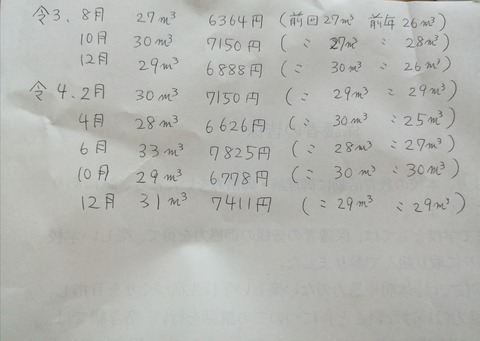 令3、8月 27m³ 6364円 (前回27m³ 前年26m³)
10月 30m³ 7150円 (〃 27m³ 〃 28m³)
12月 29m³ 6888円 (〃 30m³ 〃 26m³)
令4、2月 30m³ 7150円 (〃 29m³ 〃 29m³)
4月 28m³ 6626円 (〃 30m³ 〃 25m³)
6月 33m³ 7825円 (〃 28m³ 〃 27m³)
10月 29m³ 6778円 (〃 30m³ 〃 30m³)
12月 31m³ 7411円 (〃 29m³ 〃 29m³)